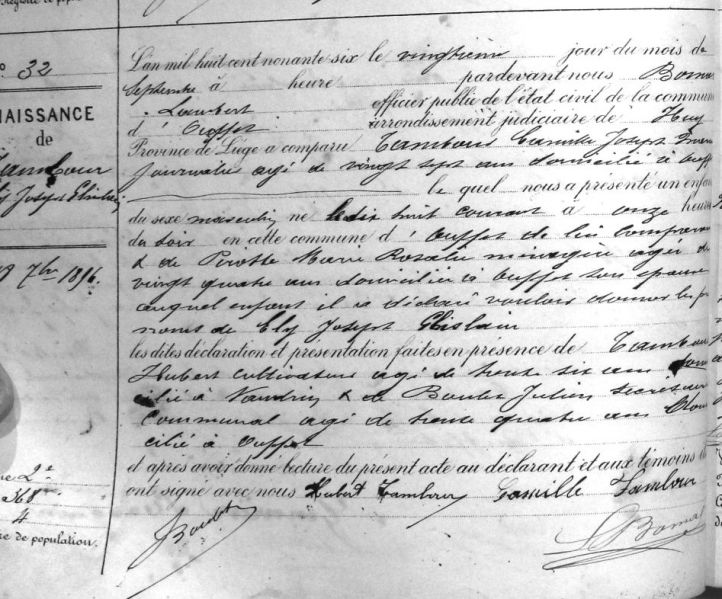 N° 32
NAISSANCE
de
Tambour
Ely Joseph Ghislain
18 7bre 1896.
2e
368
4
re de population.
L'an mil huit cent nonante six le vingtième jour du mois de
Septembre à heure pardevant nous Bomal
Lambert officier public de l'état civil de la commune
d' Ouffet arrondissement judiciaire de Huy
Province de Liège a comparu Tambour Camille Joseph
journalier agé de vingt sept ans domicilié à Ouffet
le quel nous a présenté un enfant
du sexe masculin né le dix huit courant à onze heures
du soir en cette commune d' Ouffet de lui comparant
& de Pirotte Marie Rosalie ménagère agée de
vingt quatre ans domiciliée à Ouffet son épouse
auquel enfant il a déclaré vouloir donner les pré
noms de Ely Joseph Ghislain
les dites déclaration et présentation faites en présence de Tambour
Hubert cultivateur agé de trente six ans domi
cilié à & de Julien secrétaire
communal agé de trente quatre ans domi
cilié à Ouffet
et après avoir donné lecture du présent acte au déclarant et aux témoins ils
ont signé avec nous Hubert Tambour Camille Tambour
L Bomal